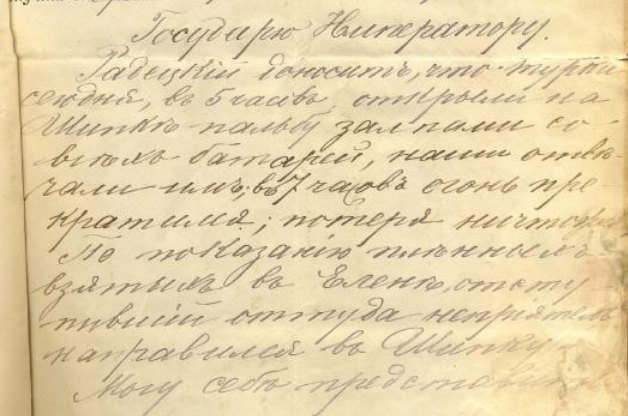 Государю Императору.
Радецкій доноситъ, что турки
сегодня, въ 5 часовъ, открыли на
Шипкѣ пальбу залпами со
всѣхъ батарей, наши отвѣ-
чали имъ; въ 7 часовъ огонь пре-
кратился; потеря ничтожна.
По показанію плѣнныхъ
взятыхъ въ Еленѣ, отсту-
пившій оттуда непріятель
направился въ Шипку
Могу себѣ представить